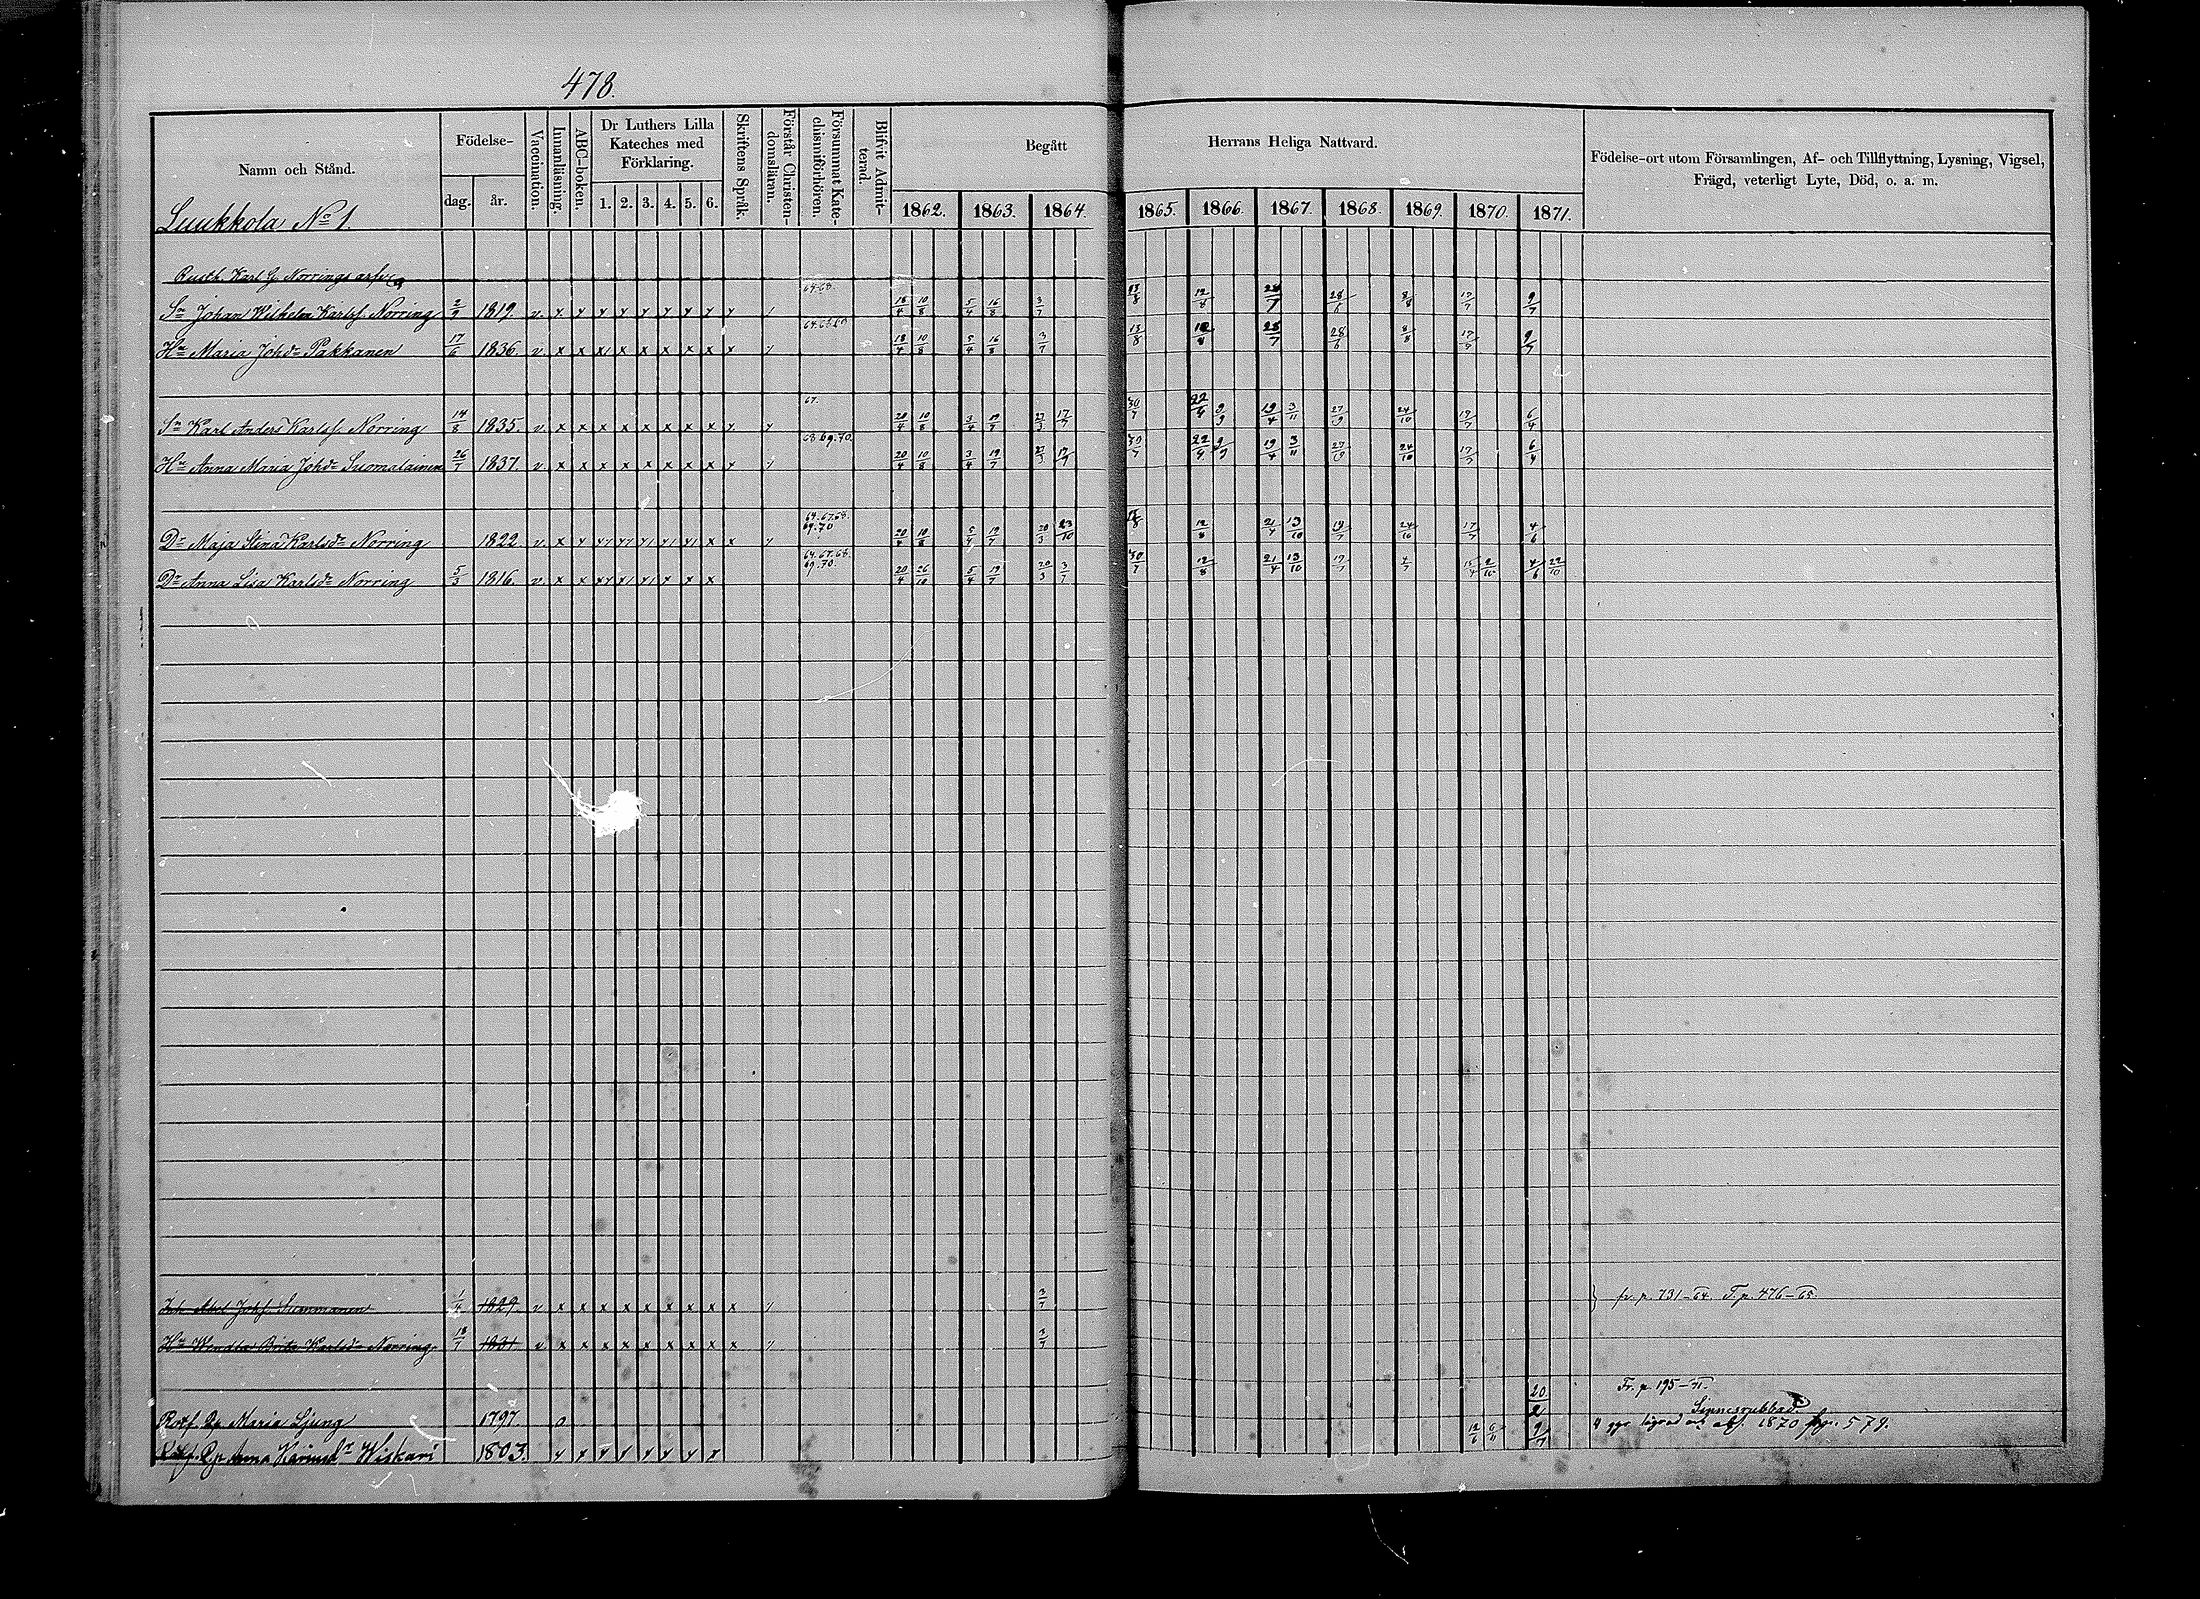 478.
Namn och Stånd.
Födelse-
dag. år.
Vaccination.
Innanläsning.
ABC-boken.
Dr Luthers Lilla Kateches med Förklaring.
1. 2. 3. 4. 5. 6.
Skriftens Språk.
Förstår Christendomsläran.
Försummat Katechismiförhören.
Blifvit Admitterad.
Begått Herrans Heliga Nattvard.
1862. 1863. 1864. 1865. 1866. 1867. 1868. 1869. 1870. 1871.
Födelse-ort utom Församlingen, Af- och Tillflyttning, Lysning, Vigsel,
Frägd, veterligt Lyte, Död, o. a. m.
Luukkola No 1.
Karl Norrings
64.68.
Sn Johan Wilhelm Karlsf. Norring 2/9 1819. v. x x x x x x x x x 18/4 10/8 5/4 16/8 3/7 13/8 12/8 28/7 28/6 8/8 17/7 9/7
Hu Maria Johdr Pakkanen 17/6 1836. v. x x x x x x x x x 18/4 10/8 5/4 16/8 3/7 13/8 12/8 28/7 28/6 8/8 17/7 9/7
67.
Sn Karl Anders Karlsf. Norring 14/8 1835. v. x x x x x x x x x 20/4 10/8 3/4 19/7 27/3 17/7 30/7 22/4 9/9 19/4 3/11 27/9 24/10 17/7 6/4
68.69.70.
Hu Anna Maria Johdr Suomalainen 26/7 1837. v. x x x x x x x x x 20/4 10/8 3/4 19/7 27/3 17/7 30/7 22/4 9/9 19/4 3/11 27/9 24/10 17/7 6/4
64.67.68.
69.70
Dr Maja Stina Karlsdr Norring 1822. v. 20/4 10/8 5/4 19/7 20/3 23/10 12/8 21/4 13/10 19/7 24/10 17/7 4/6
64.67.68.
69.70.
Dr Anna Lisa Karlsdr Norring 5/3 1816. v. 20/4 26/10 5/4 19/7 20/3 3/7 30/7 12/8 21/4 13/10 4/6 22/10
Abel Johsf. Summanen 1/4 1829. v x x x x x x x x x 3/7 fr. p. 731-64. T. p. 476-65.
Hu Wendla Brita Karlsdr Norring 18/7 1831 v x x x x x x x x x 3/7
Fr. p. 195-71.
Maria Ljung 1797. 0 20/2 Sinnesrubbad.
Anna Wiskari 1803. 12/6 6/11 9/7 4 ggr 1870 579.